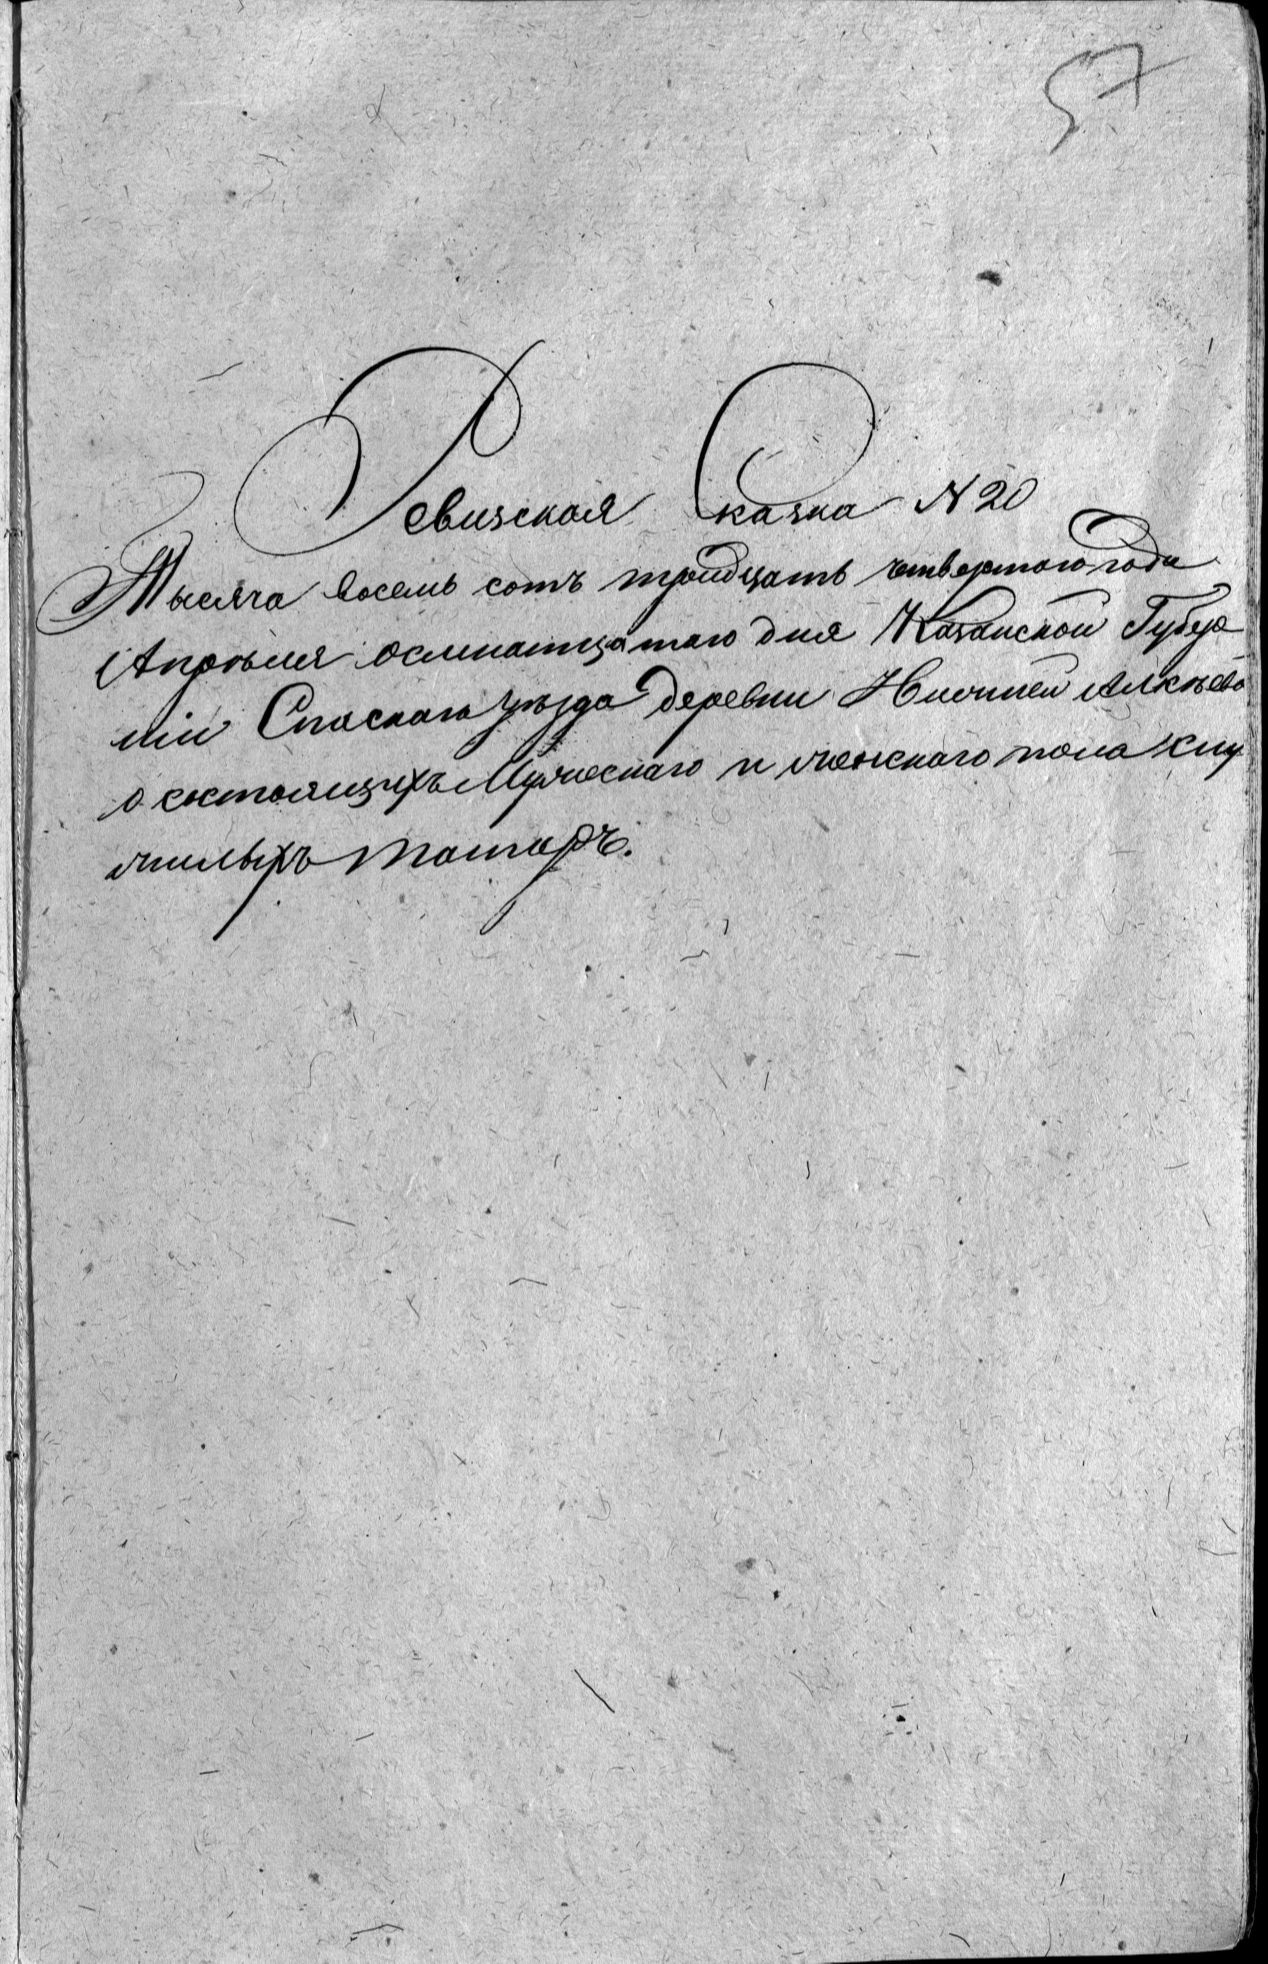 57
Ревизская Сказка N 20
Тысяча восемь сотъ тридцать четвертаго года
Апреля осмнатцатаго дня Казанской Губер
ніи Спаскаго уѣзда деревни Нижней Алкѣево
о состоящихъ Мужескаго и женскаго пола слу
жилыхъ татаръ.